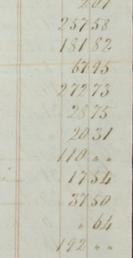 257 58
181 82
67 95
272 73
28 75
20 31
110 " "
17 54
37 50
" 64
192 " "